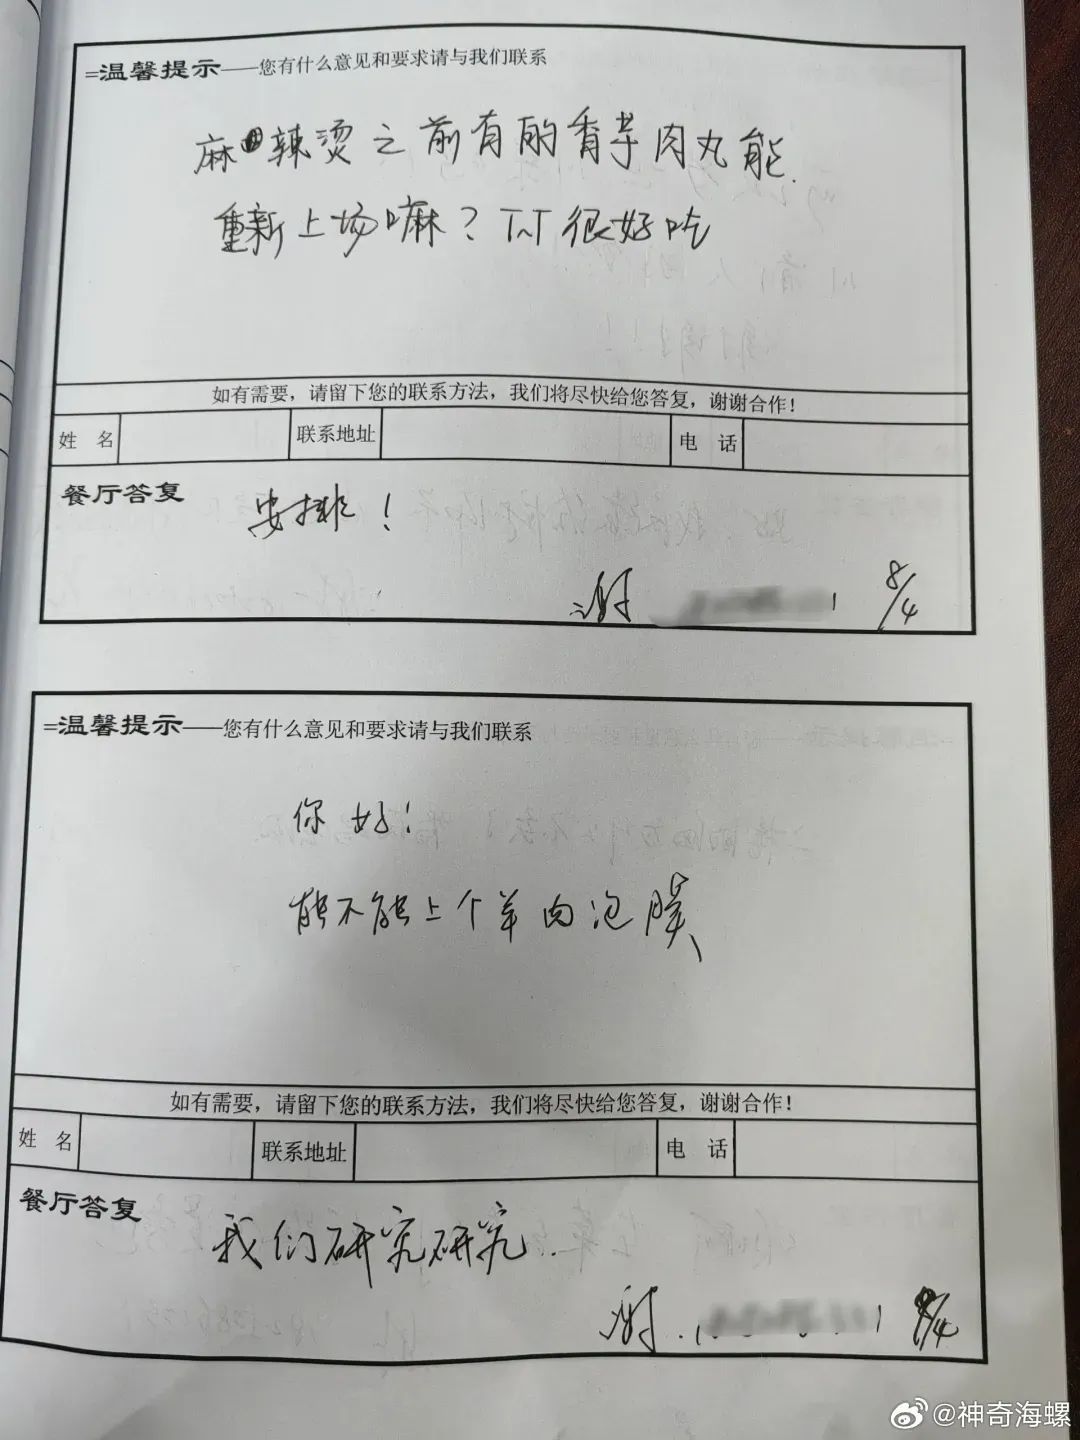 =温馨提示——您有什么意见和要求请与我们联系
麻辣烫之前有的香芋肉丸能
重新上场嘛？TT很好吃
如有需要，请留下您的联系方法，我们将尽快给您答复，谢谢合作！
姓 名 联系地址 电 话
餐厅答复
安排！
谢 8/4
=温馨提示——您有什么意见和要求请与我们联系
你好！
能不能上个羊肉泡膜
如有需要，请留下您的联系方法，我们将尽快给您答复，谢谢合作！
姓 名 联系地址 电 话
餐厅答复
我们研究研究.
谢 8/4
@神奇海螺